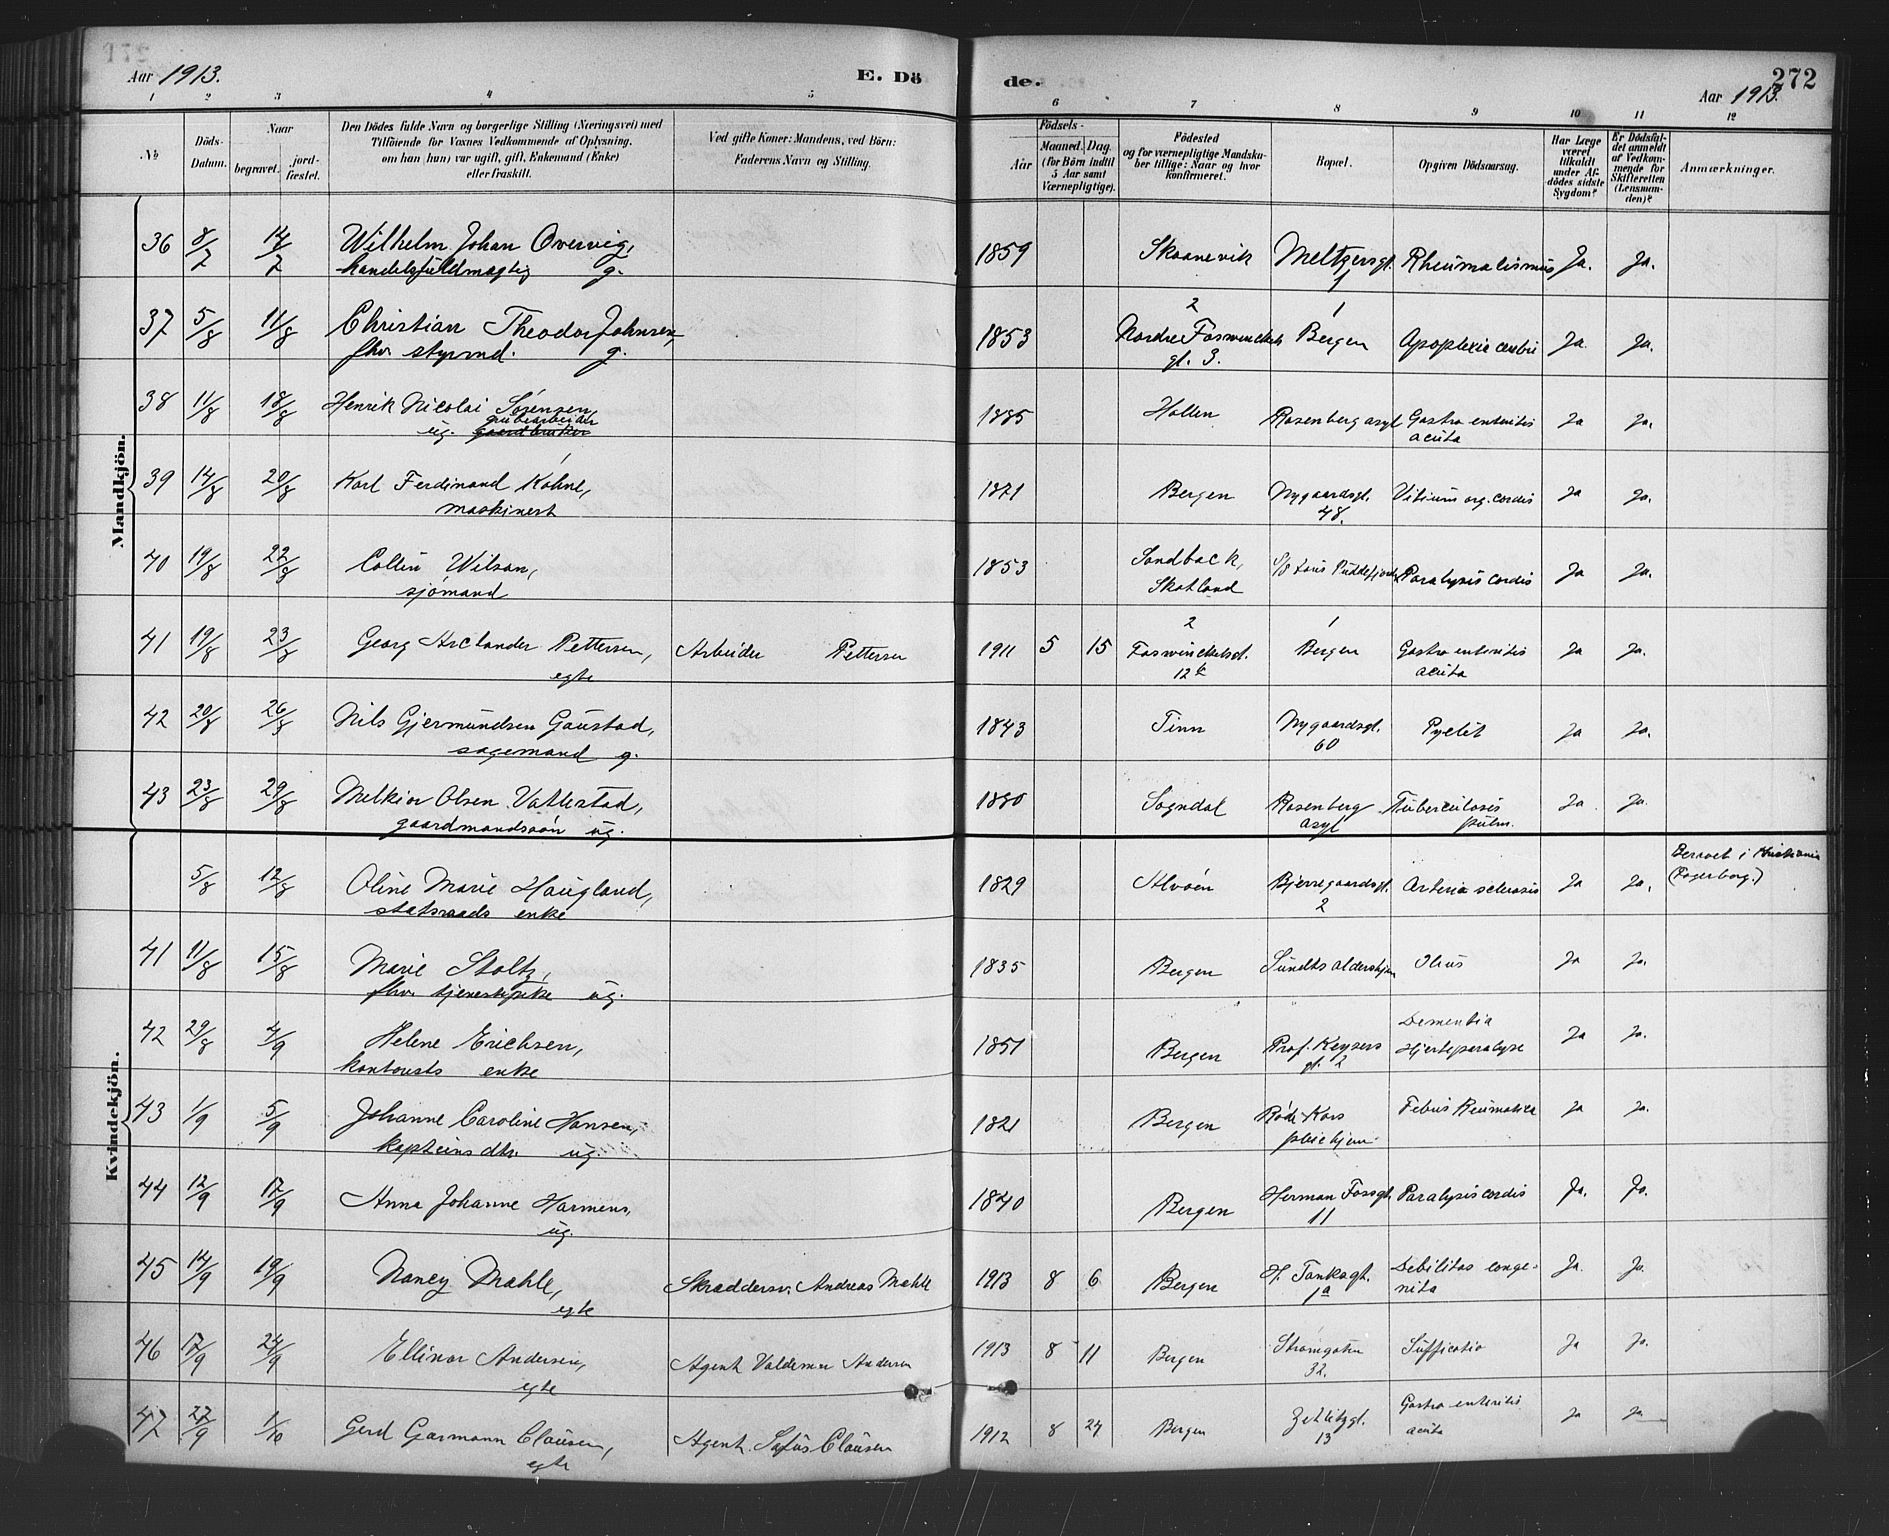 Aar 1913.
E. Dö
de.
272
Aar 1913.
1 2 3 4 5 6 7 8 9 10 11 12
No
Döds-Datum.
Naar
begravet.
jord-fæstet.
Den Dödes fulde Navn og borgerlige Stilling (Næringsvei) med
Tilföiende for Voxnes Vedkommende af Oplysning,
om han (hun) var ugift, gift, Enkemand (Enke)
eller fraskilt.
Ved gifte Koner: Mandens, ved Börn:
Faderens Navn og Stilling.
Födsels-
Aar
Maaned. Dag.
(for Börn indtil
5 Aar samt
Værnepligtige).
Födested
og for værnepligtige Mandska-
ber tillige: Naar og hvor
konfirmeret.
Bopæl.
Opgiven Dödsaarsag.
Har Læge
været
tilkaldt
under Af-
dödes sidste
Sygdom?
Er Dödsfal-
det anmeldt
af Vedkom-
mende for
Skifteretten
(Lensman-
den)?
Anmærkninger.
Mandkjön.
36 8/7 14/7 Wilhelm Johan Overvig, 1859 Skaanevik Meltzersgt. Rheumatismus Ja. Ja.
handelsfuldmægtig g. 1
2 1
37 5/8 11/8 Christian Theodor Johnsen, 1853 Nordre Fosswinckels Bergen Apoplexia cerebri Ja. Ja.
fhv. styrmd. g. gt. 3.
38 11/8 18/8 Henrik Nicolai Sørensen, 1885 Hollen Rosenberg asyl Gastro enteritis Ja Ja.
grubearbeider
ug. gaardbruker acuta
39 14/8 20/8 Karl Ferdinand Kahne, 1871 Bergen Nygaardsgt. Vitium org. cordis Ja Ja.
maskinist 48.
40 19/8 22/8 Collin Wilson, 1853 Sandback, S/S Puddefjorden Paralysis cordis Ja Ja.
sjømand Skotland
2 1
41 19/8 23/8 Georg Arclander Pettersen, Arbeider Pettersen 1911 5 15 Foswinckelsgt. Bergen Gastro enteritis Ja Ja.
egte 12 acuta
42 20/8 26/8 Nils Gjermundsen Gaustad, 1843 Tinn Nygaardsgt. Pyelit Ja Ja.
sagemand g. 60
43 23/8 29/8 Melkior Olsen Vattestad, 1880 Sogndal Rosenberg Tuberculosis Ja Ja.
gaardmandssøn ug. asyl pulm.
Kvindekjön.
5/8 12/8 Oline Marie Haugland, 1829 Alvøen Bjerregaardsgt. Arteria sclerosis Ja Ja. Begravet i Kristiania
statsraads enke 2 (Fagerborg.)
41 11/8 15/8 Marie Stoltz, 1835 Bergen Sundts aldershjem Ileus Ja Ja.
fhv. tjenestepike ug.
42 29/8 4/9 Helene Erichsen, 1851 Bergen Prof. Keysers Dementia Ja Ja.
kontorists enke gt. 2 Hjerteparalyse
43 1/9 5/9 Johanne Caroline Hansen, 1821 Bergen Røde Kors Febris Reumatica Ja Ja.
kapteins dtr. ug. pleiehjem
44 12/9 17/9 Anna Johanne Harmens, 1840 Bergen Herman Fossgt. Paralysis cordis Ja. Ja.
ug. 11
45 14/9 19/9 Nancy Mahle, Skræddersv. Andreas Mahle 1913 8 6 Bergen H. Tanksgt. Debilitas conge- Ja. Ja.
egte 1a nita
46 17/9 24/9 Ellinor Andersen, Agent Valdemar Andersen 1913 8 11 Bergen Strømgaten Sufficatio Ja Ja.
egte 32.
47 27/9 1/10 Gerd Garmann Clausen, Agent. Sofus Clausen 1912 8 24 Bergen Zetlitzgt. Gastro enteritis Ja Ja
egte 13 acuta